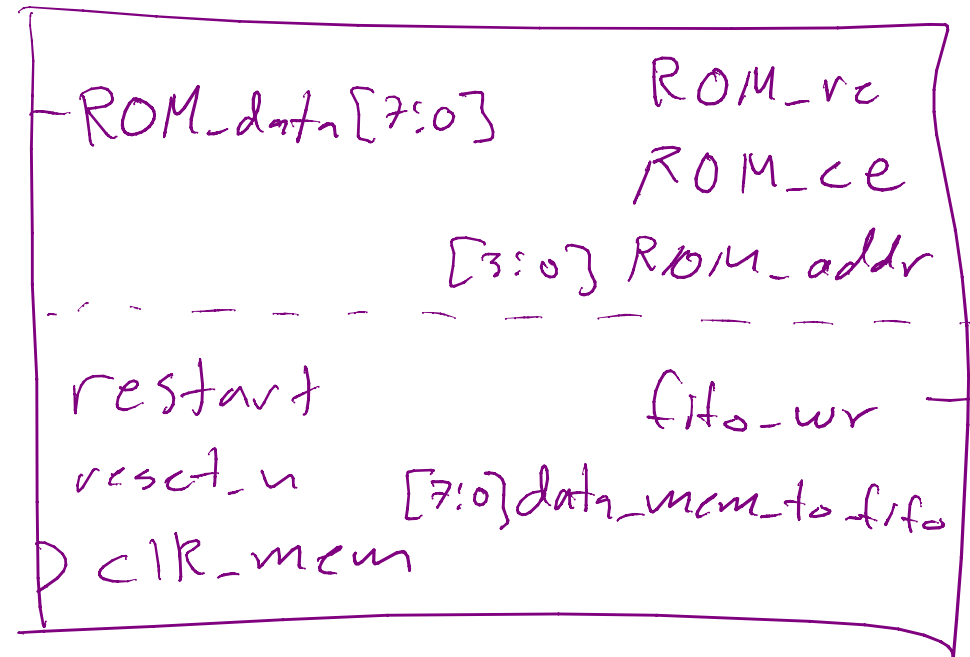 ROM_data[7:0]
ROM_re
ROM_ce
[3:0] ROM_addr
restart
reset_n
clk_mem
fifo_wr
[7:0]data_mem_to_fifo